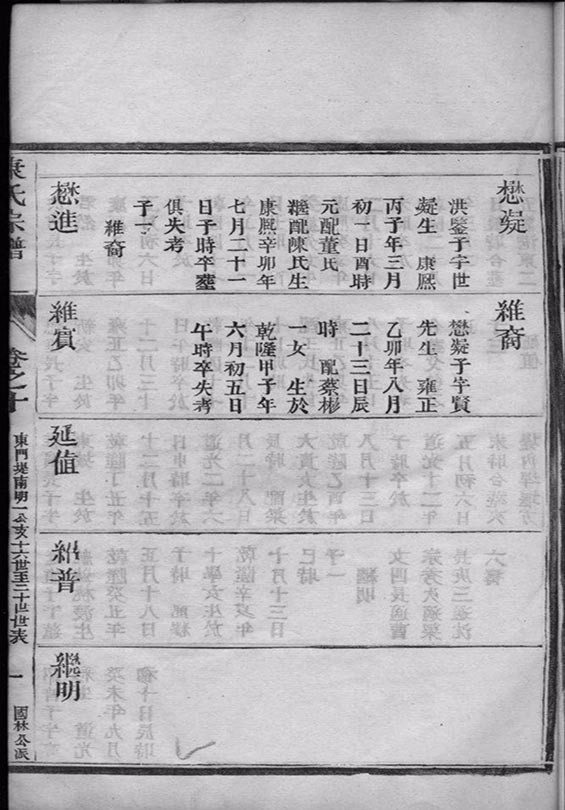 懋凝
洪鑒子字世
凝生 康熙
丙子年三月
初一日酉時
元配董氏
繼配陳氏生
康熙辛卯年
七月二十一
日子時卒塟
俱失考
子一
維裔
懋進
維裔
懋凝子字賢
先生 雍正
乙卯年八月
二十三日辰
時 配蔡彬
一女 生於
乾隆甲子年
六月初五日
午時卒失考
維賓
延值
紹普
繼明
氏宗譜
卷之十
東門堤南明一公亥十六世至二十世世表
一
國林公派